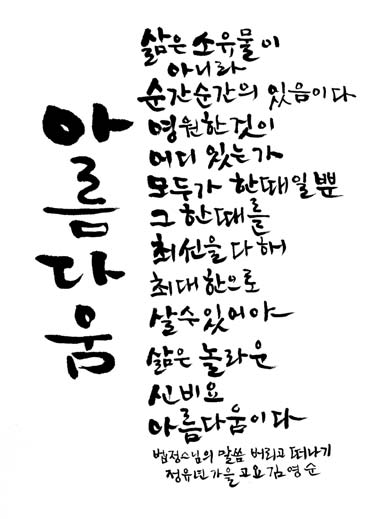 아름다움
삶은 소유물이
아니라
순간순간의 있음이다
영원한것이
어디 있는가
모두가 한때일뿐
그 한때를
최선을 다해
최대한으로
살수있어야
삶은 놀라운
신비요
아름다움이다
법정스님의 말씀 버리고 떠나기
정유년 가을 고요 김영순